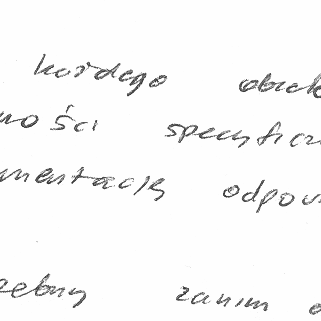 każdego obiek
ności specyficz
mentację odpow
zebny zanim o